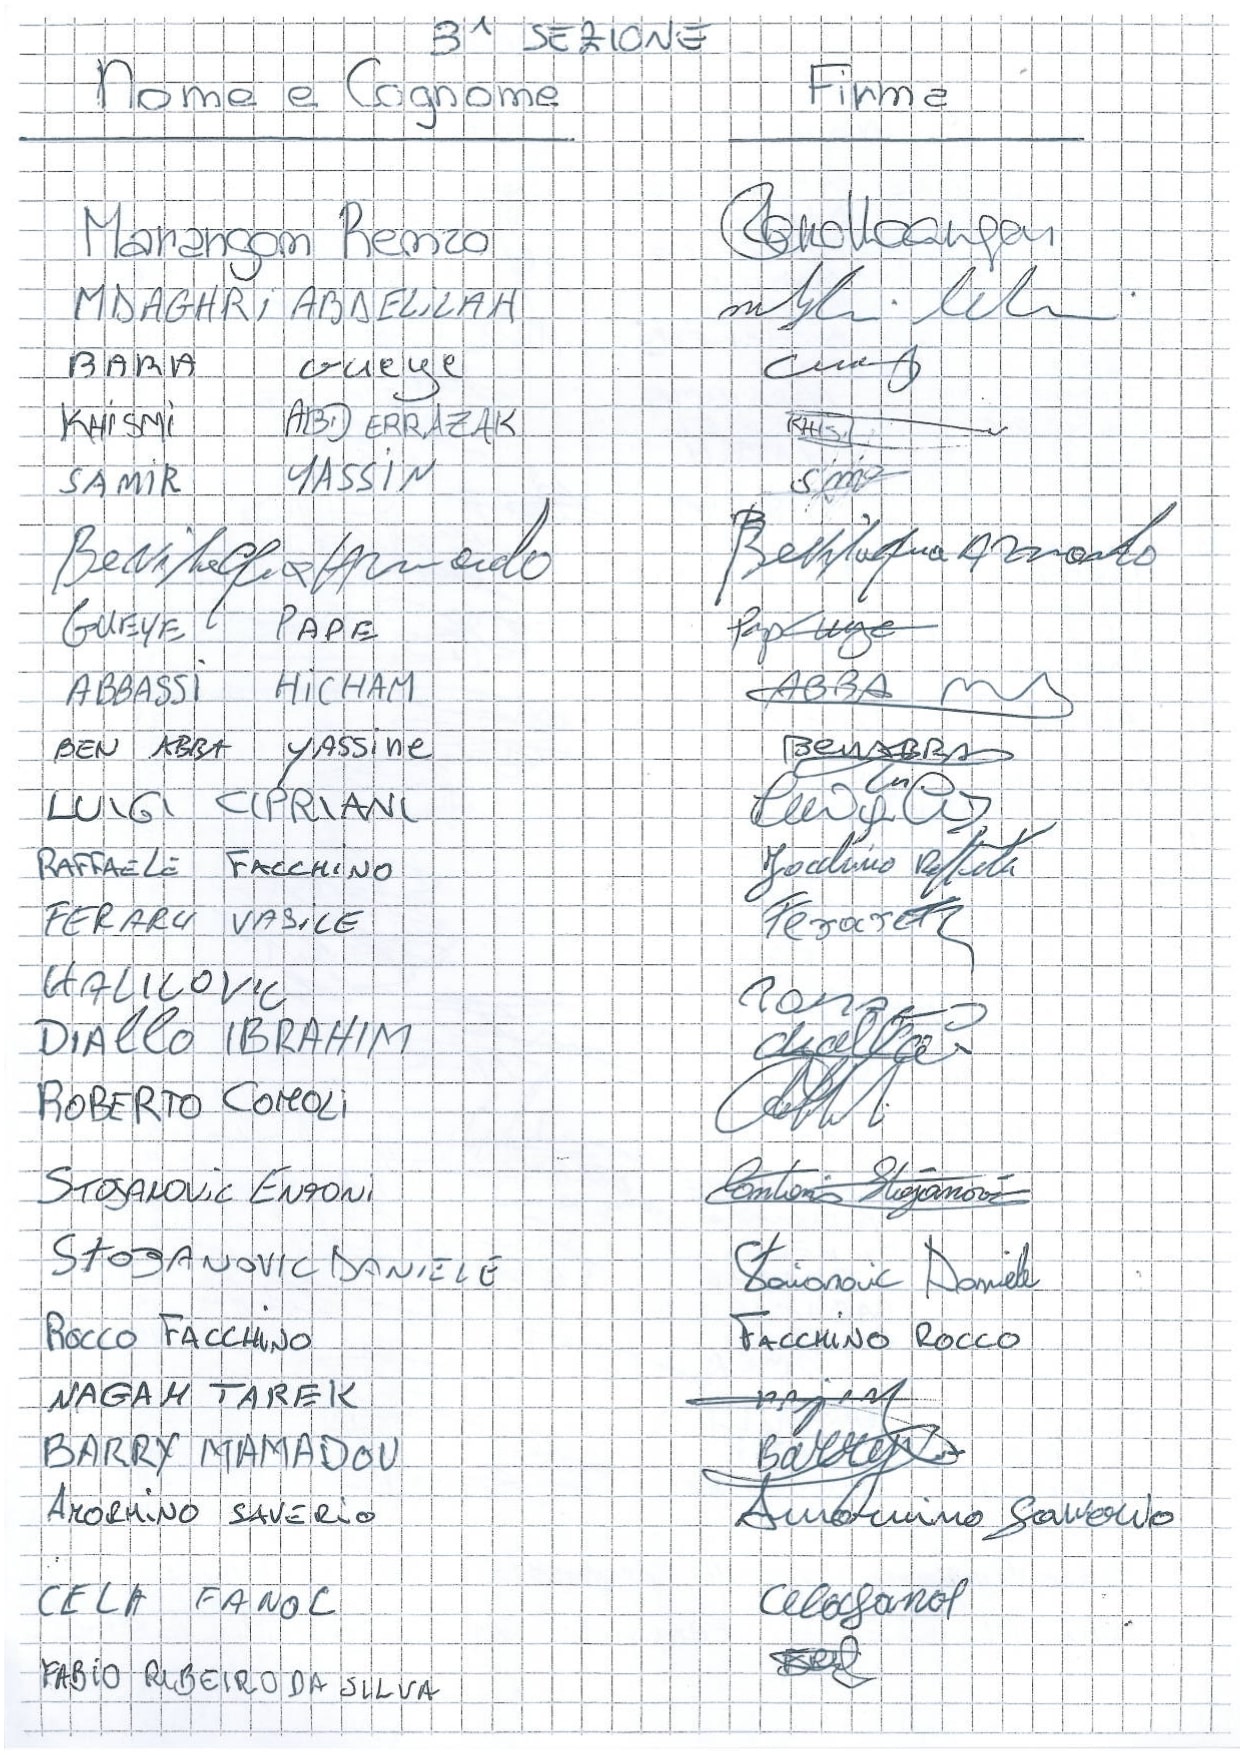 3^ SEZIONE
Nome e Cognome Firma
Marangon Renzo
MDAGHRi ABDELiLAH
BARA Gueye
KHiSMi ABDERRAZAK KHIS
SAMIR YASSiN
Bevilacqua Armando Bevilacqua Armando
GUEYE PAPE
ABBASSi HiCHAM ABBA
BEN ABBA YASSine BenABBA
LUIGI CIPRIANI
RAFFAELE FACCHINO Facchino Raffaele
FERARU VASiLE
HALILOVIC
DiAllo IBRAHIM diallo
ROBERTO COMOLi
STOJANOVIC ENTONI Stojanovic
STOJANOVIC DANIELE Stoianovic Daniele
ROCCO FACCHINO FACCHINO ROCCO
NAGAH TAREK
BARRY MAMADOU Barry
AMORMINO SAVERIO Amormino Saverio
CELA FANOL Cela fanol
FABIO RIBEIRO DA SILVA